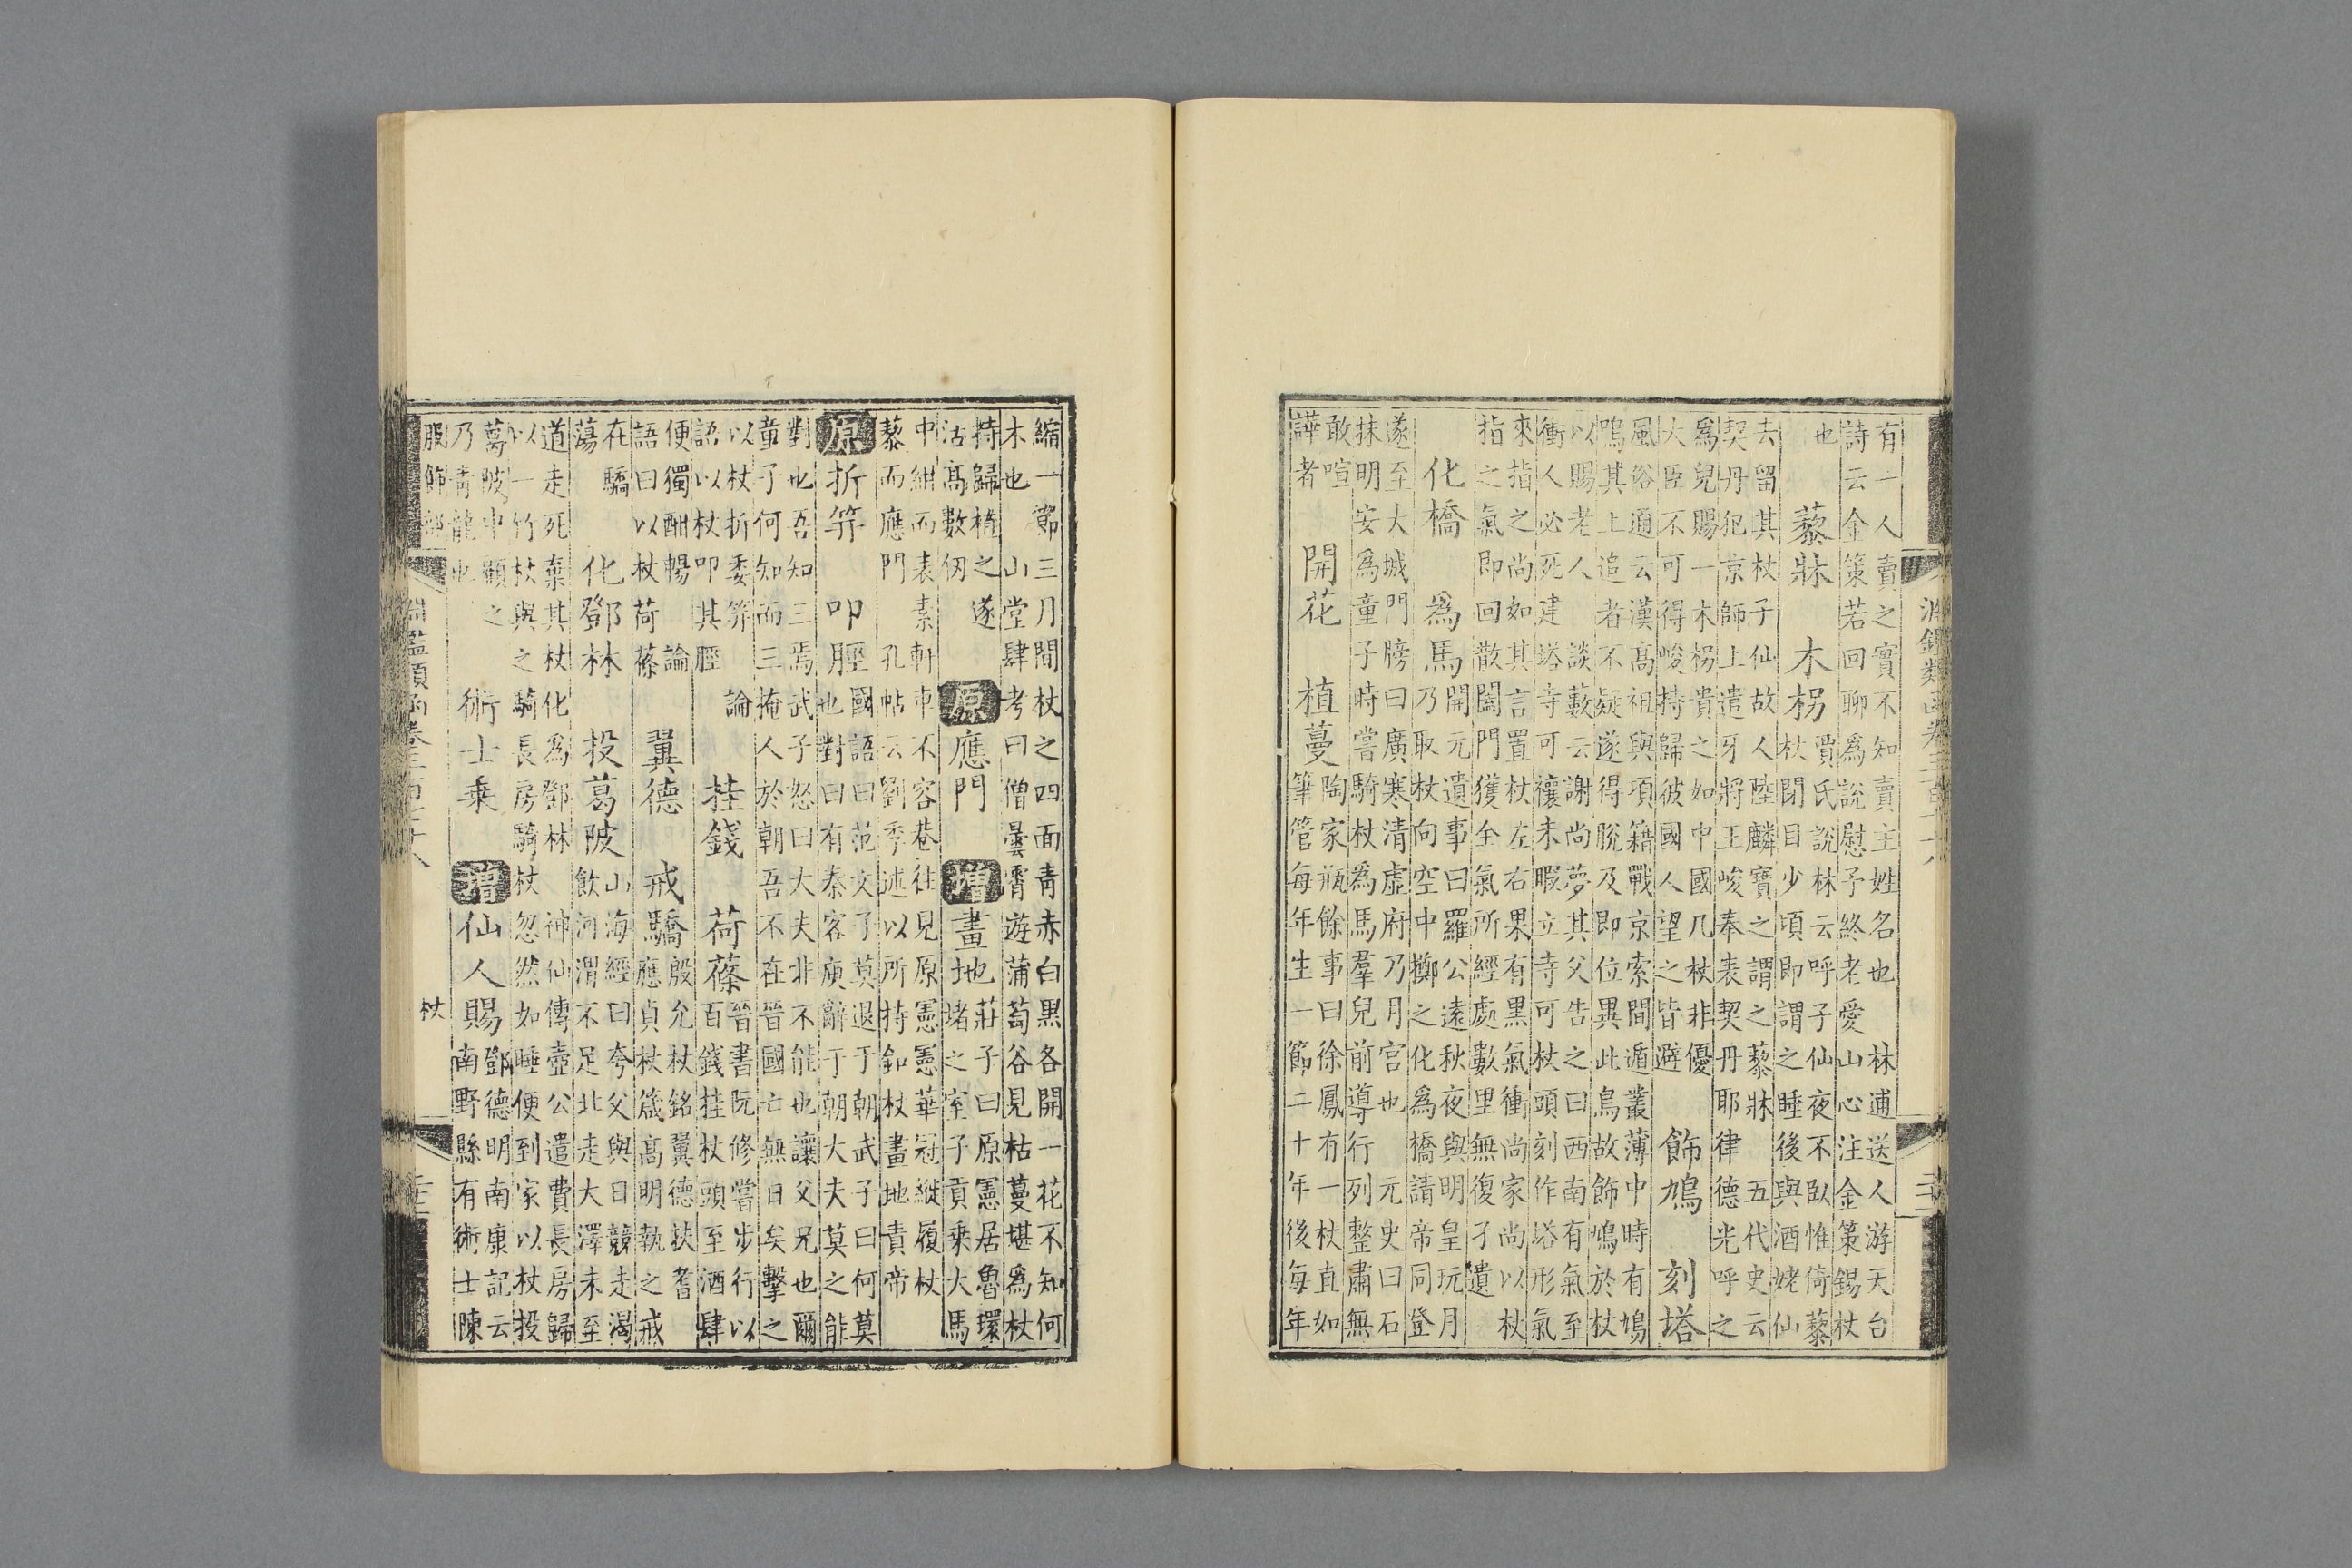 淵鑑類函卷三百七十八
有一人賣之實不知賣主姓名也 林逋送人游天台
詩云金策若回聊爲說慰子終老愛山心注金策錫杖
也
藜牀 木柺
賈氏說林云呼子仙夜不臥惟倚藜
杖閉目少頃即謂之睡後與酒姥仙
去留其杖子仙故人陸麟寶之謂之藜牀 五代史云
契丹犯京師上遣牙將王峻奉表契丹耶律德光呼之
爲兒賜一木柺貴之如中國几杖非優
大臣不可得峻持歸彼國人望之皆避
飾鳩 刻塔
風俗通云漢髙祖與項籍戰京索間遁叢薄中時有鳩
鳴其上追者不疑遂得脫及即位異此鳥故飾鳩於杖
以賜老人 談藪云謝尚夢其父告之曰西南有氣至
衝人必死建塔寺可禳未暇立寺可杖頭刻作塔形氣
來指之尚如其言置杖左右果有黒氣衝尚家尚以杖
指之氣即回散闔門獲全氣所經處數里無復孑遺
化橋 爲馬
開元遺事曰羅公遠秋夜與明皇玩月
乃取杖向空中擲之化爲橋請帝同登
遂至大城門牓曰廣寒清虛府乃月宮也 元史曰石
抹明安爲童子時嘗騎杖爲馬羣兒前導行列整肅無
敢喧
譁者
開花 植蔓
陶家瓶餘事曰徐鳳有一杖直如
筆管每年生一節二十年後每年
縮一節三月間杖之四面青赤白黒各開一花不知何
木也 山堂肆考曰僧曇霄遊蒲萄谷見枯蔓堪爲杖
持歸植之遂
活髙數仞
原應門 增畫地
莊子曰原憲居魯環
堵之室子貢乘大馬
中紺而表素軒車不容巷往見原憲憲華冠縰履杖
藜而應門 孔帖云劉季述以所持釦杖畫地責帝
原折笄 叩脛
國語曰范文子莫退于朝武子曰何莫
也對曰有秦客廋辭于朝大夫莫之能
對也吾知三焉武子怒曰大夫非不能也讓父兄也爾
童子何知而三掩人於朝吾不在晉國亡無日矣擊之
以杖折委笄 論
語以杖叩其脛
挂錢 荷蓧
晉書阮修嘗步行以
百錢挂杖頭至酒肆
便獨酣暢 論
語曰以杖荷蓧
翼德 戒驕
殷允杖銘翼德扶耆
應貞杖箴髙明執之戒
在驕
蕩
化鄧林 投葛陂
山海經曰夸父與日競走渴
飲河渭不足北走大澤未至
道走死棄其杖化爲鄧林 神仙傳壺公遣費長房歸
以一竹杖與之騎長房騎杖忽然如睡便到家以杖投
葛陂中顧之
乃青龍也
術士乘 增仙人賜
鄧德明南康記云
南野縣有術士陳
服飾部
淵鑑類函卷三百七十八
杖